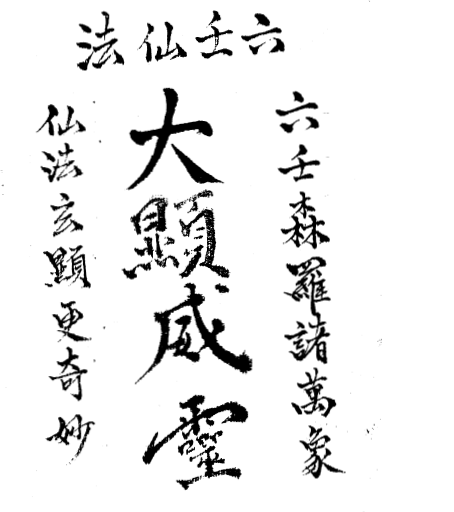 六壬仙法
六壬森羅諸萬象
大顯威靈
仙法玄顕更奇妙